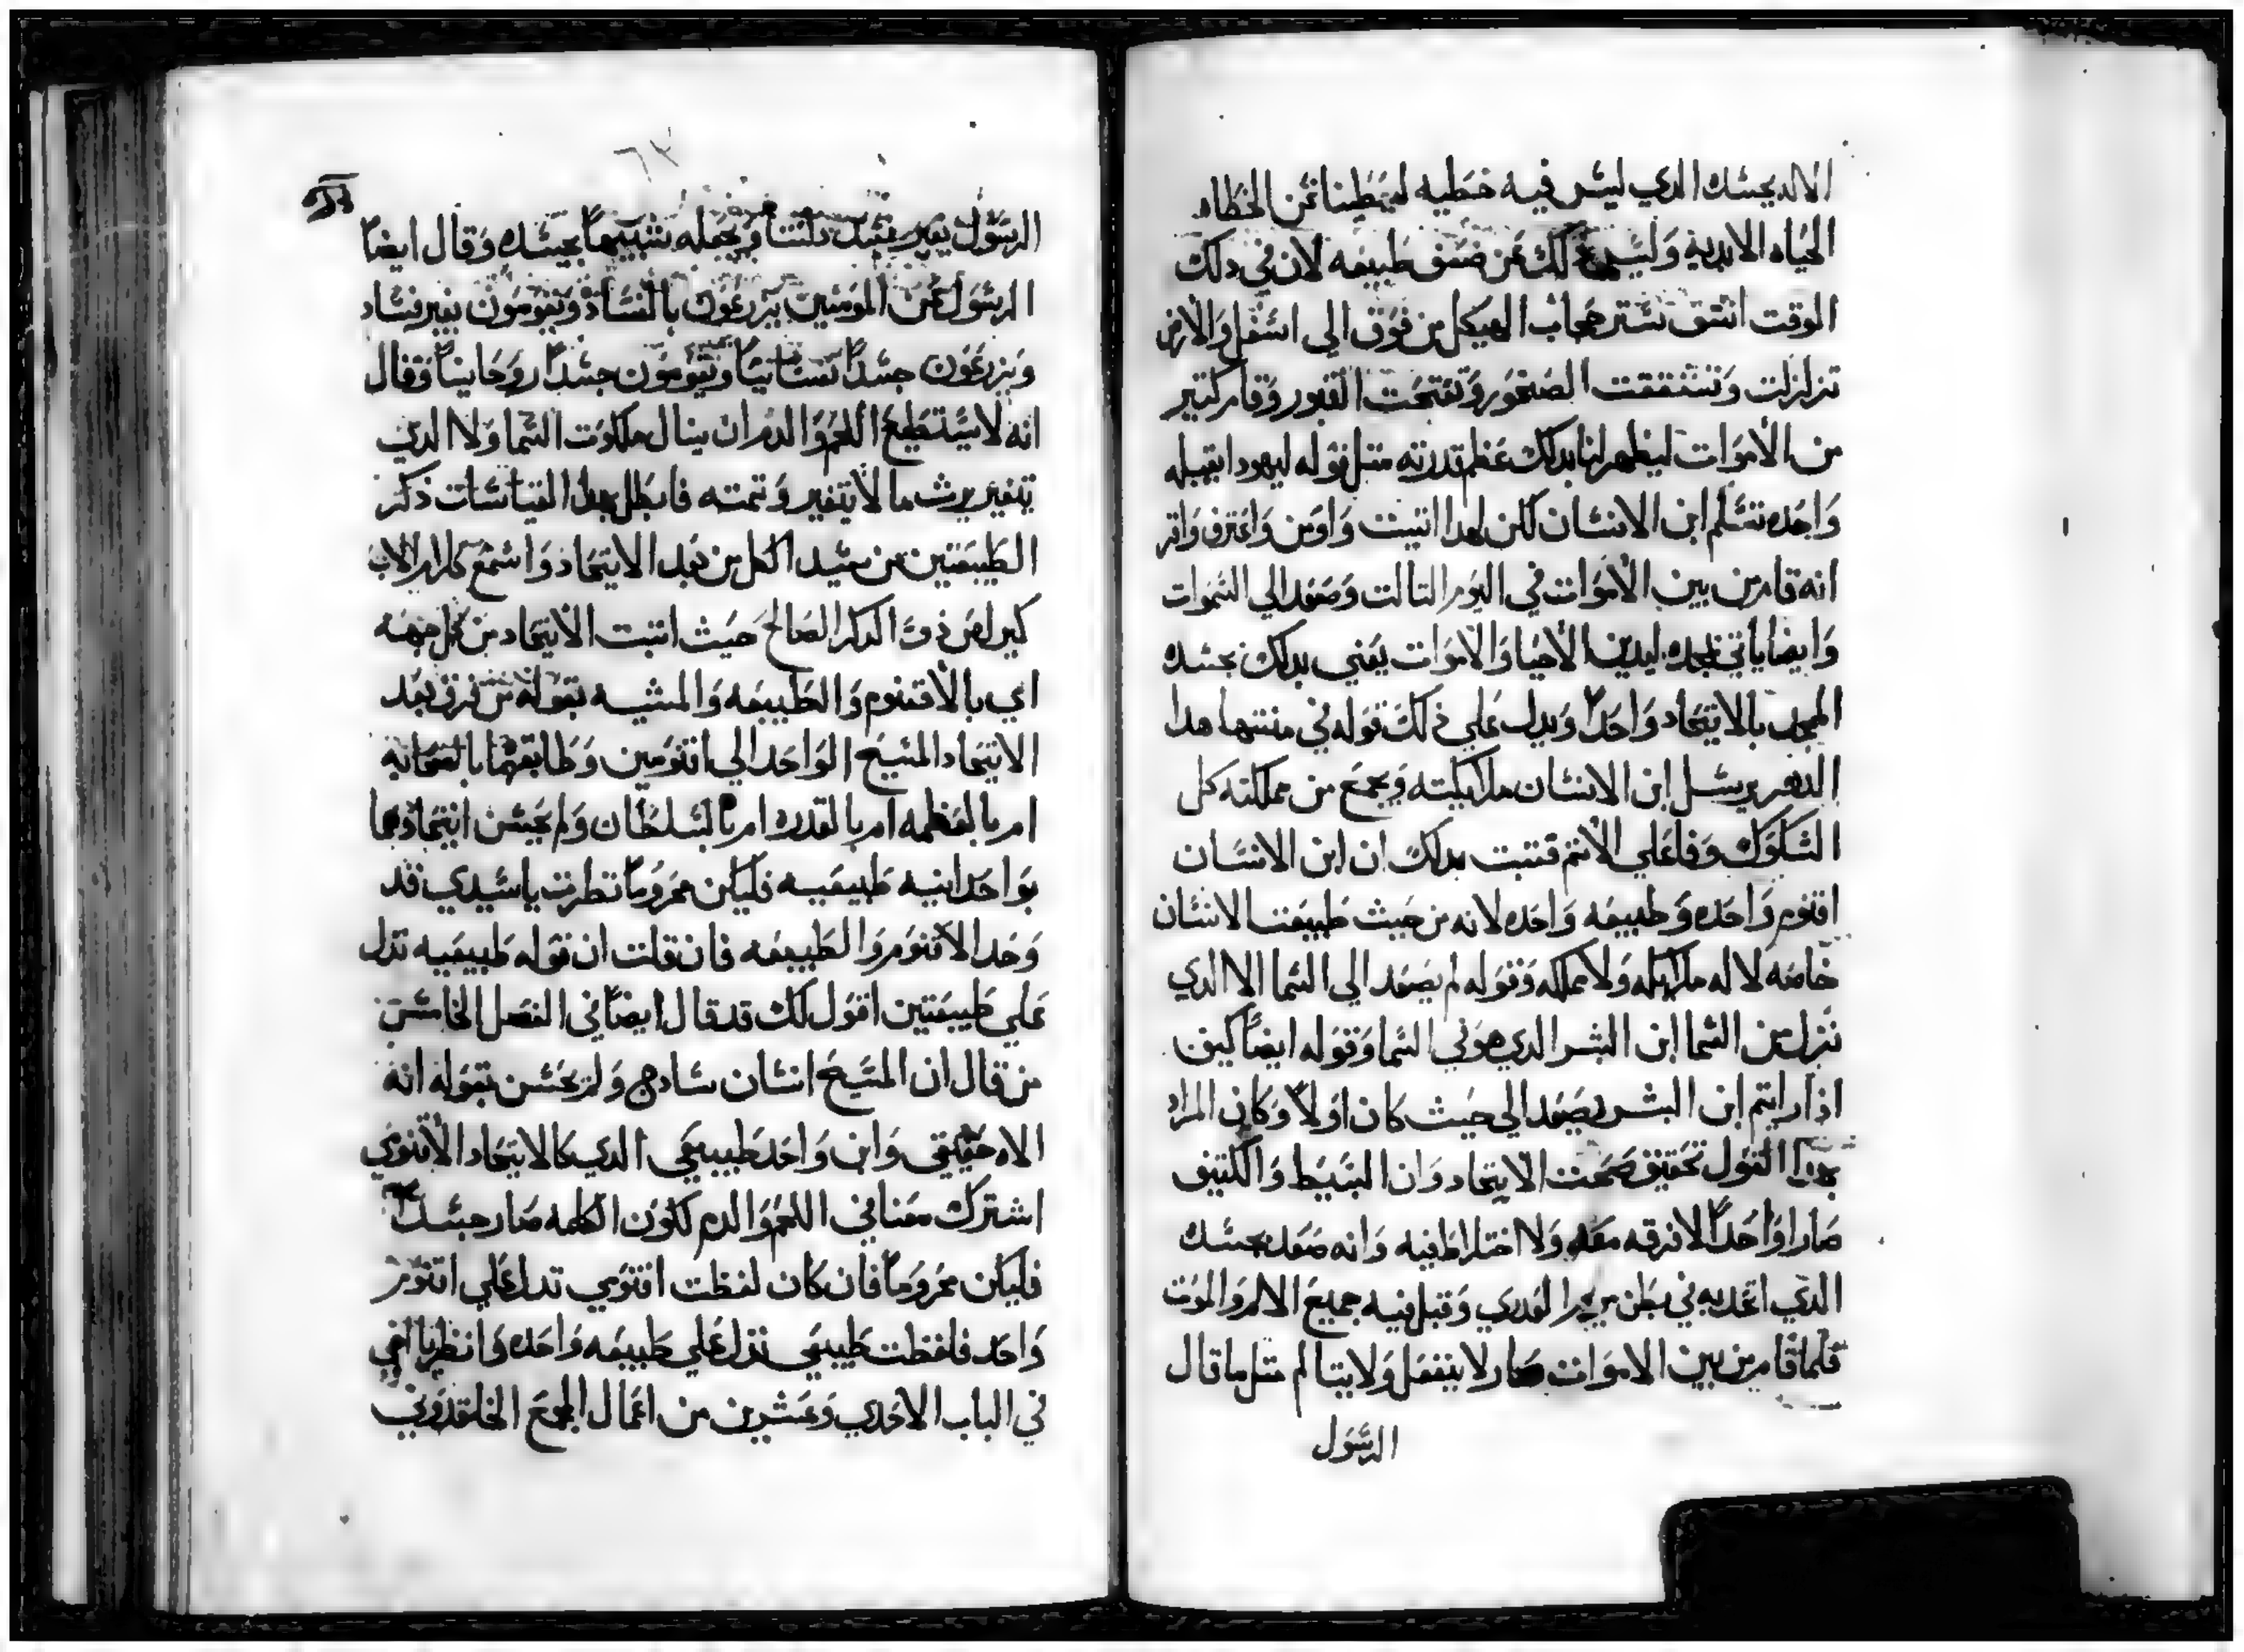 الاله بجسده الدي ليس فيه خطيه ليعطينا نحن الخطاه
الحياه الابديه وليس دلك عن ضعف طبيعه لان في دلك
الوقت انشق ستر حجاب الهيكل من فوق الى اسفل والارض
تزلزلت وتشققت الصخور وتفتحت القبور وقام كتير
من الاموات ليظهر لنا بدلك عظم قدرته متل قوله ليهودا ابقبله
واحده تسلم ابن الانسان لكن لهدا اتيت واومن واعترف واقر
انه قام من بين الاموات في اليوم التالت وصعد الي السموات
وايضا ياتي بمجده ليدين الاحيا والاموات يعني بدلك بجسده
الممجد بالاتحاد واحدا ويدل علي ذلك قوله في منتها هدا
الدهر يرسل ابن الانسان ملايكته ويجمع من مملكته كل
الشكوك وفاعلي الاتم فتبت بدلك ان ابن الانسان
اقنوم واحده وطبيعه واحده لانه من حيث طبيعت الانسان
خاصه لا له ملايكه ولا مملكه وقوله لم يصعد الي السما الا الدي
نزل من السما ابن البشر الدي هو في السما وقوله ايضا كيف
اذا رايتم ابن البشر يصعد الي حيث كان اولا وكان المراد
بهدا القول تحقيق صحت الاتحاد وان البسيط والكتيف
صارا واحدا لا فرقه معه ولا اختلاط فيه وانه صعد بجسده
الدي اتحد به في بطن مريم العدري وقبل فيه جميع الالام والموت
فلما قام من بين الاموات صار لا ينفعل ولا يتالم متل ما قال
الرسول
٦٣
الرسول يغير جسد دلتنا ويجعله شبيها بجسده وقال ايضا
الرسول عن المومنين يزرعون بالفساد ويقومون بغير فساد
ويزرعون جسدا نفسانيا ويقومون جسدا روحانيا وقال
انه لا يستطيع اللحم والدم ان ينال ملكوت السما ولا الدي
يتغير يرث ما لا يتغير وتمته فابطل بهدا القياسات ذكر
الطبيعتين من سيد الكل من بعد الاتحاد واسمع كلام الاب
كيرلص ذو الدكر الصالح حيث اتبت الاتحاد من كل جهه
اي بالاقنوم والطبيعه والمشيه بقوله من فرق بعد
الاتحاد المسيح الواحد الي اقنومين وطابقهما بالصحابه
ام بالعظمه ام بالقدره ام بالسلطان ولم يحسن اتحادهما
بواحدانيه طبيعيه فليكن محروما نظرت يا سيدي قد
وحد الاقنوم والطبيعه فان قلت ان قوله طبيعيه تدل
علي طبيعتين اقول لك قد قال ايضا في الفصل الخامس
من قال ان المسيح انسان سادج ولم يحسن بقوله انه
الاه حقيقي وابن واحد طبيعي الدي كالاتحاد الاقنومي
اشترك معنا في اللحم والدم لكون الكلمه صار جسدا
فليكن محروما فان كان لفظت اقنومي تدل علي اقنوم
واحد فلفظت طبيعي تدل علي طبيعه واحده وانظر يا اخي
في الباب الاحدي وعشرين من اعمال المجمع الخلقدوني